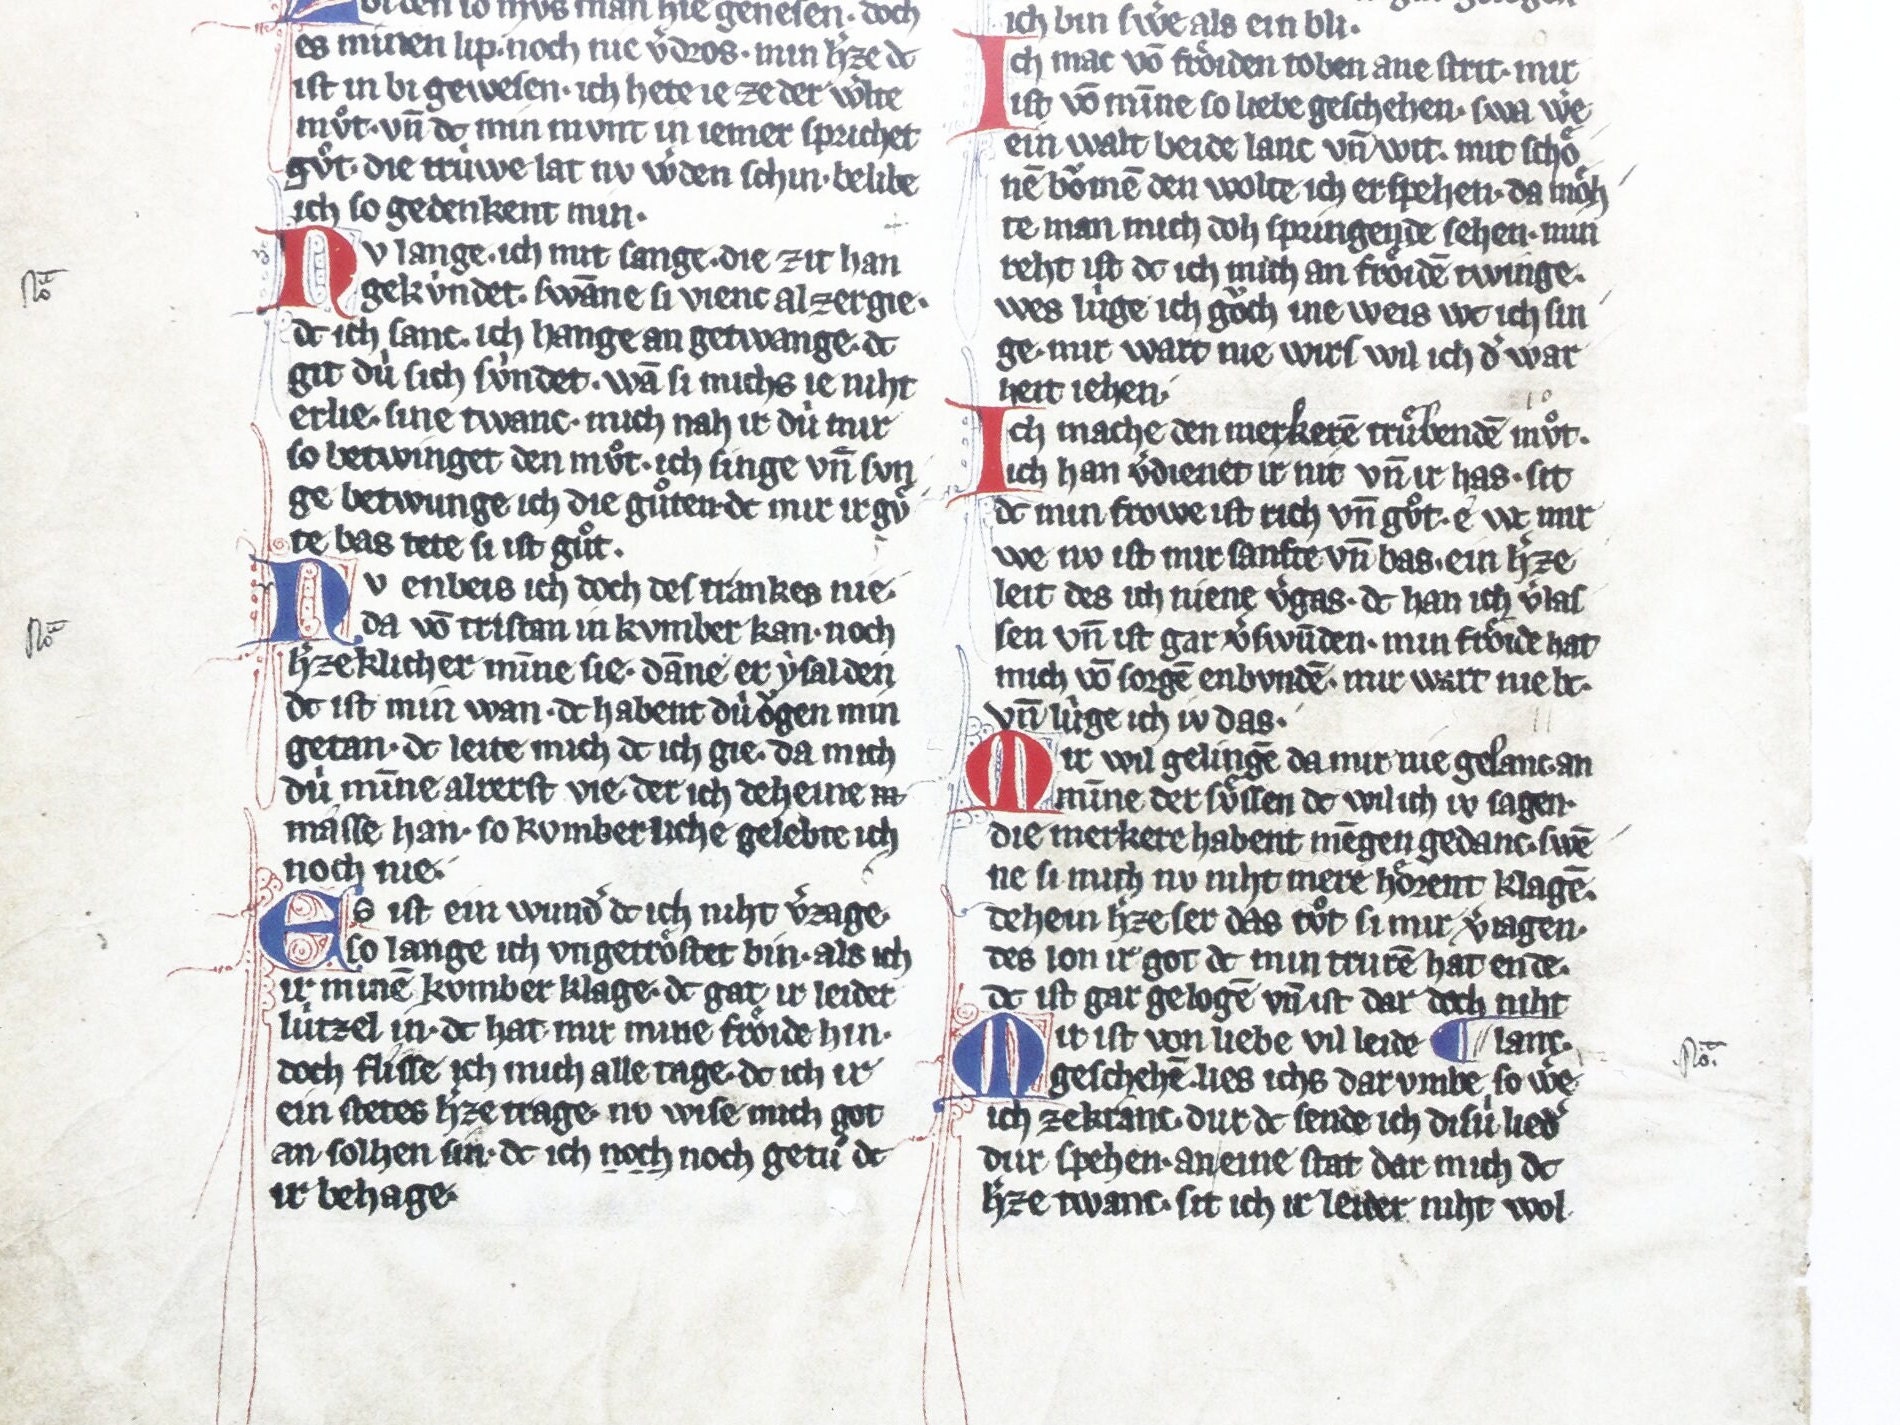 es minen lip· noch nie v̉dros· min h̉ze dc
ist in bi gewesen· ich hete ie ze der w̉lte
mv̊t· vn̄ dc min mvnt in iemer sprichet
gv̊t· die trúwe lat nv w̉den schin· belibe
ich so gedenkent min·
Nv lange· ich mit sange· die zit han
gekv́ndet· swāne si vienc al zergie·
dc ich sanc· ich hange an getwange· dc
git dú sich sv́ndet· wā si michs ie niht
erlie· sine twanc· mich nah ir dú mir
so betwinget den mv̊t· ich singe vn̄ svn
ge betwunge ich die gůten· dc mir ir gv̊
te bas tete si ist gůt·
Nv enbeis ich doch des trankes nie·
da vō tristan in kvmber kan· noch
h̉zeklicher mīne sie· dāne er ẏsalden
dc ist min wan· dc habent dú ŏgen min
getan· dc leite mich dc ich gie· da mich
dú mīne alrerst vie· der ich deheine m
masse han· so kvmberliche gelebte ich
noch nie·
Es ist ein wund̉ dc ich niht v̉zage·
so lange ich vngetrőstet bin· als ich
ir minē kvmber klage· dc gat ir leider
lútzel in· dc hat mir mine frőide hin·
doch flisse ich mich alle tage· dc ich ir
ein stetes h̉ze trage· nv wise mich got
an solhen sin· dc ich noch noch getů dc
ir behage·
ich bin sw̉e als ein bli·
Ich mac vō frőiden toben ane strit· mir
ist vō mīne so liebe geschehen· swa w̉e
ein walt beide lanc vn̄ wit· mit schő
nē bőmē den wolte ich erspehen· da mőh
te man mich doh springende sehen· min
reht ist dc ich mich an frőidē twinge·
wes lúge ich gŏch ine weis wc ich sin
ge· mir wart nie wirs wil ich d̉ war
heit iehen·
Ich mache den merkerē trůbendē mv̊t·
ich han v̉dienet ir nit vn̄ ir has· sit
dc min frowe ist rich vn̄ gv̊t· e wc mir
we nv ist mir sanfte vn̄ bas· ein h̉ze
leit des ich niene v̉gas· dc han ich v̉las
sen vn̄ ist gar v̉swūden· min frőide hat
mich vō sorgē enbvndē· mir wart nie bc·
vn̄ lúge ich iv das·
Mir wil gelingē da mir nie gelanc· an
mīne der sv̊ssen dc wil ich iv sagen·
die merkere habent mēgen gedanc· swē
ne si mich nv niht mere hőrent klagē·
dehein h̉ze ser das tůt si mir v̉tragen·
des lon ir got dc min trurē hat ende·
dc ist gar gelogē vn̄ ist dar doch niht
Mir ist von liebe vil leide ¶ lanc·
geschehē· lies ichs dar vmbe so w̉e
ich ze kranc· dur dc sende ich disú lied̉
dur spehen· an eine stat dar mich dc
h̉ze twanc· sit ich ir leider niht wol